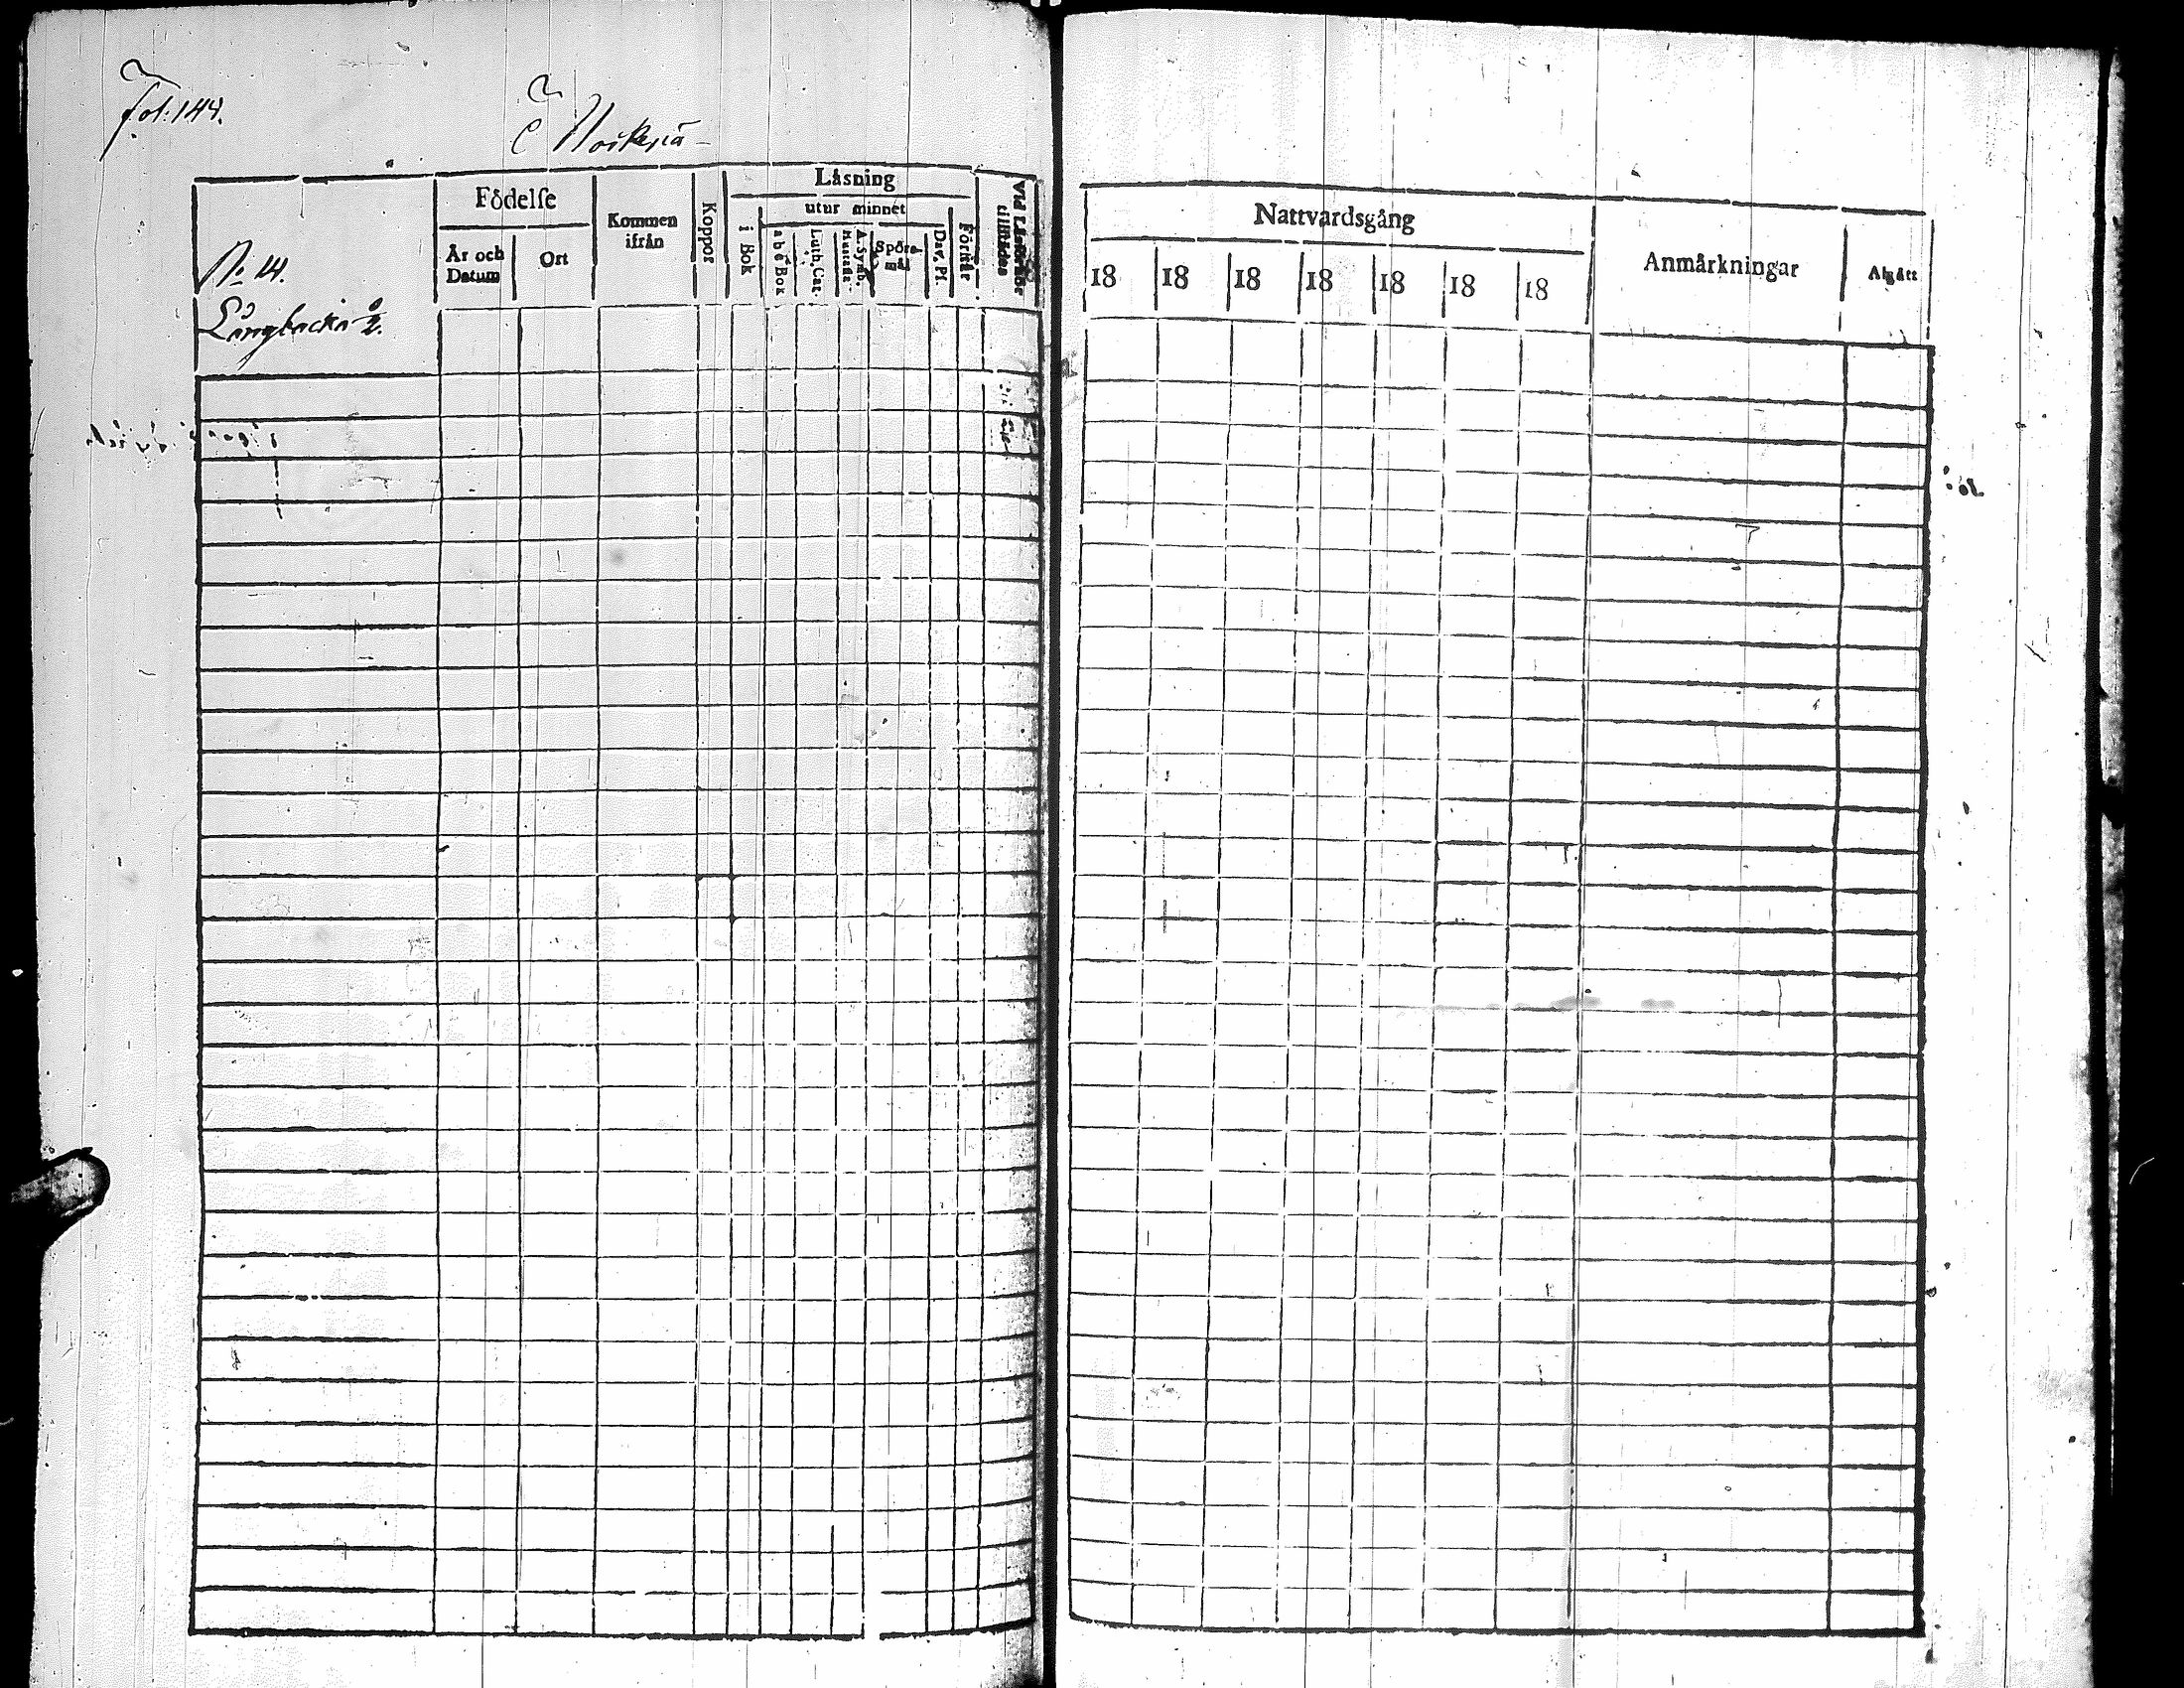 Fol: 144.
Födelse
Kommen ifrån
Koppor
Läsning
utur minnet
Vid Läsförhör tillstädes
År och Datum
Ort
i Bok
abc Bok
Luth. Cat.
A. Symb.
Spörsmål
Dav. Ps.
Förhör
No 14.
Långbacka
Nattvardsgång
Anmärkningar
Afgått
18 18 18 18 18 18 18